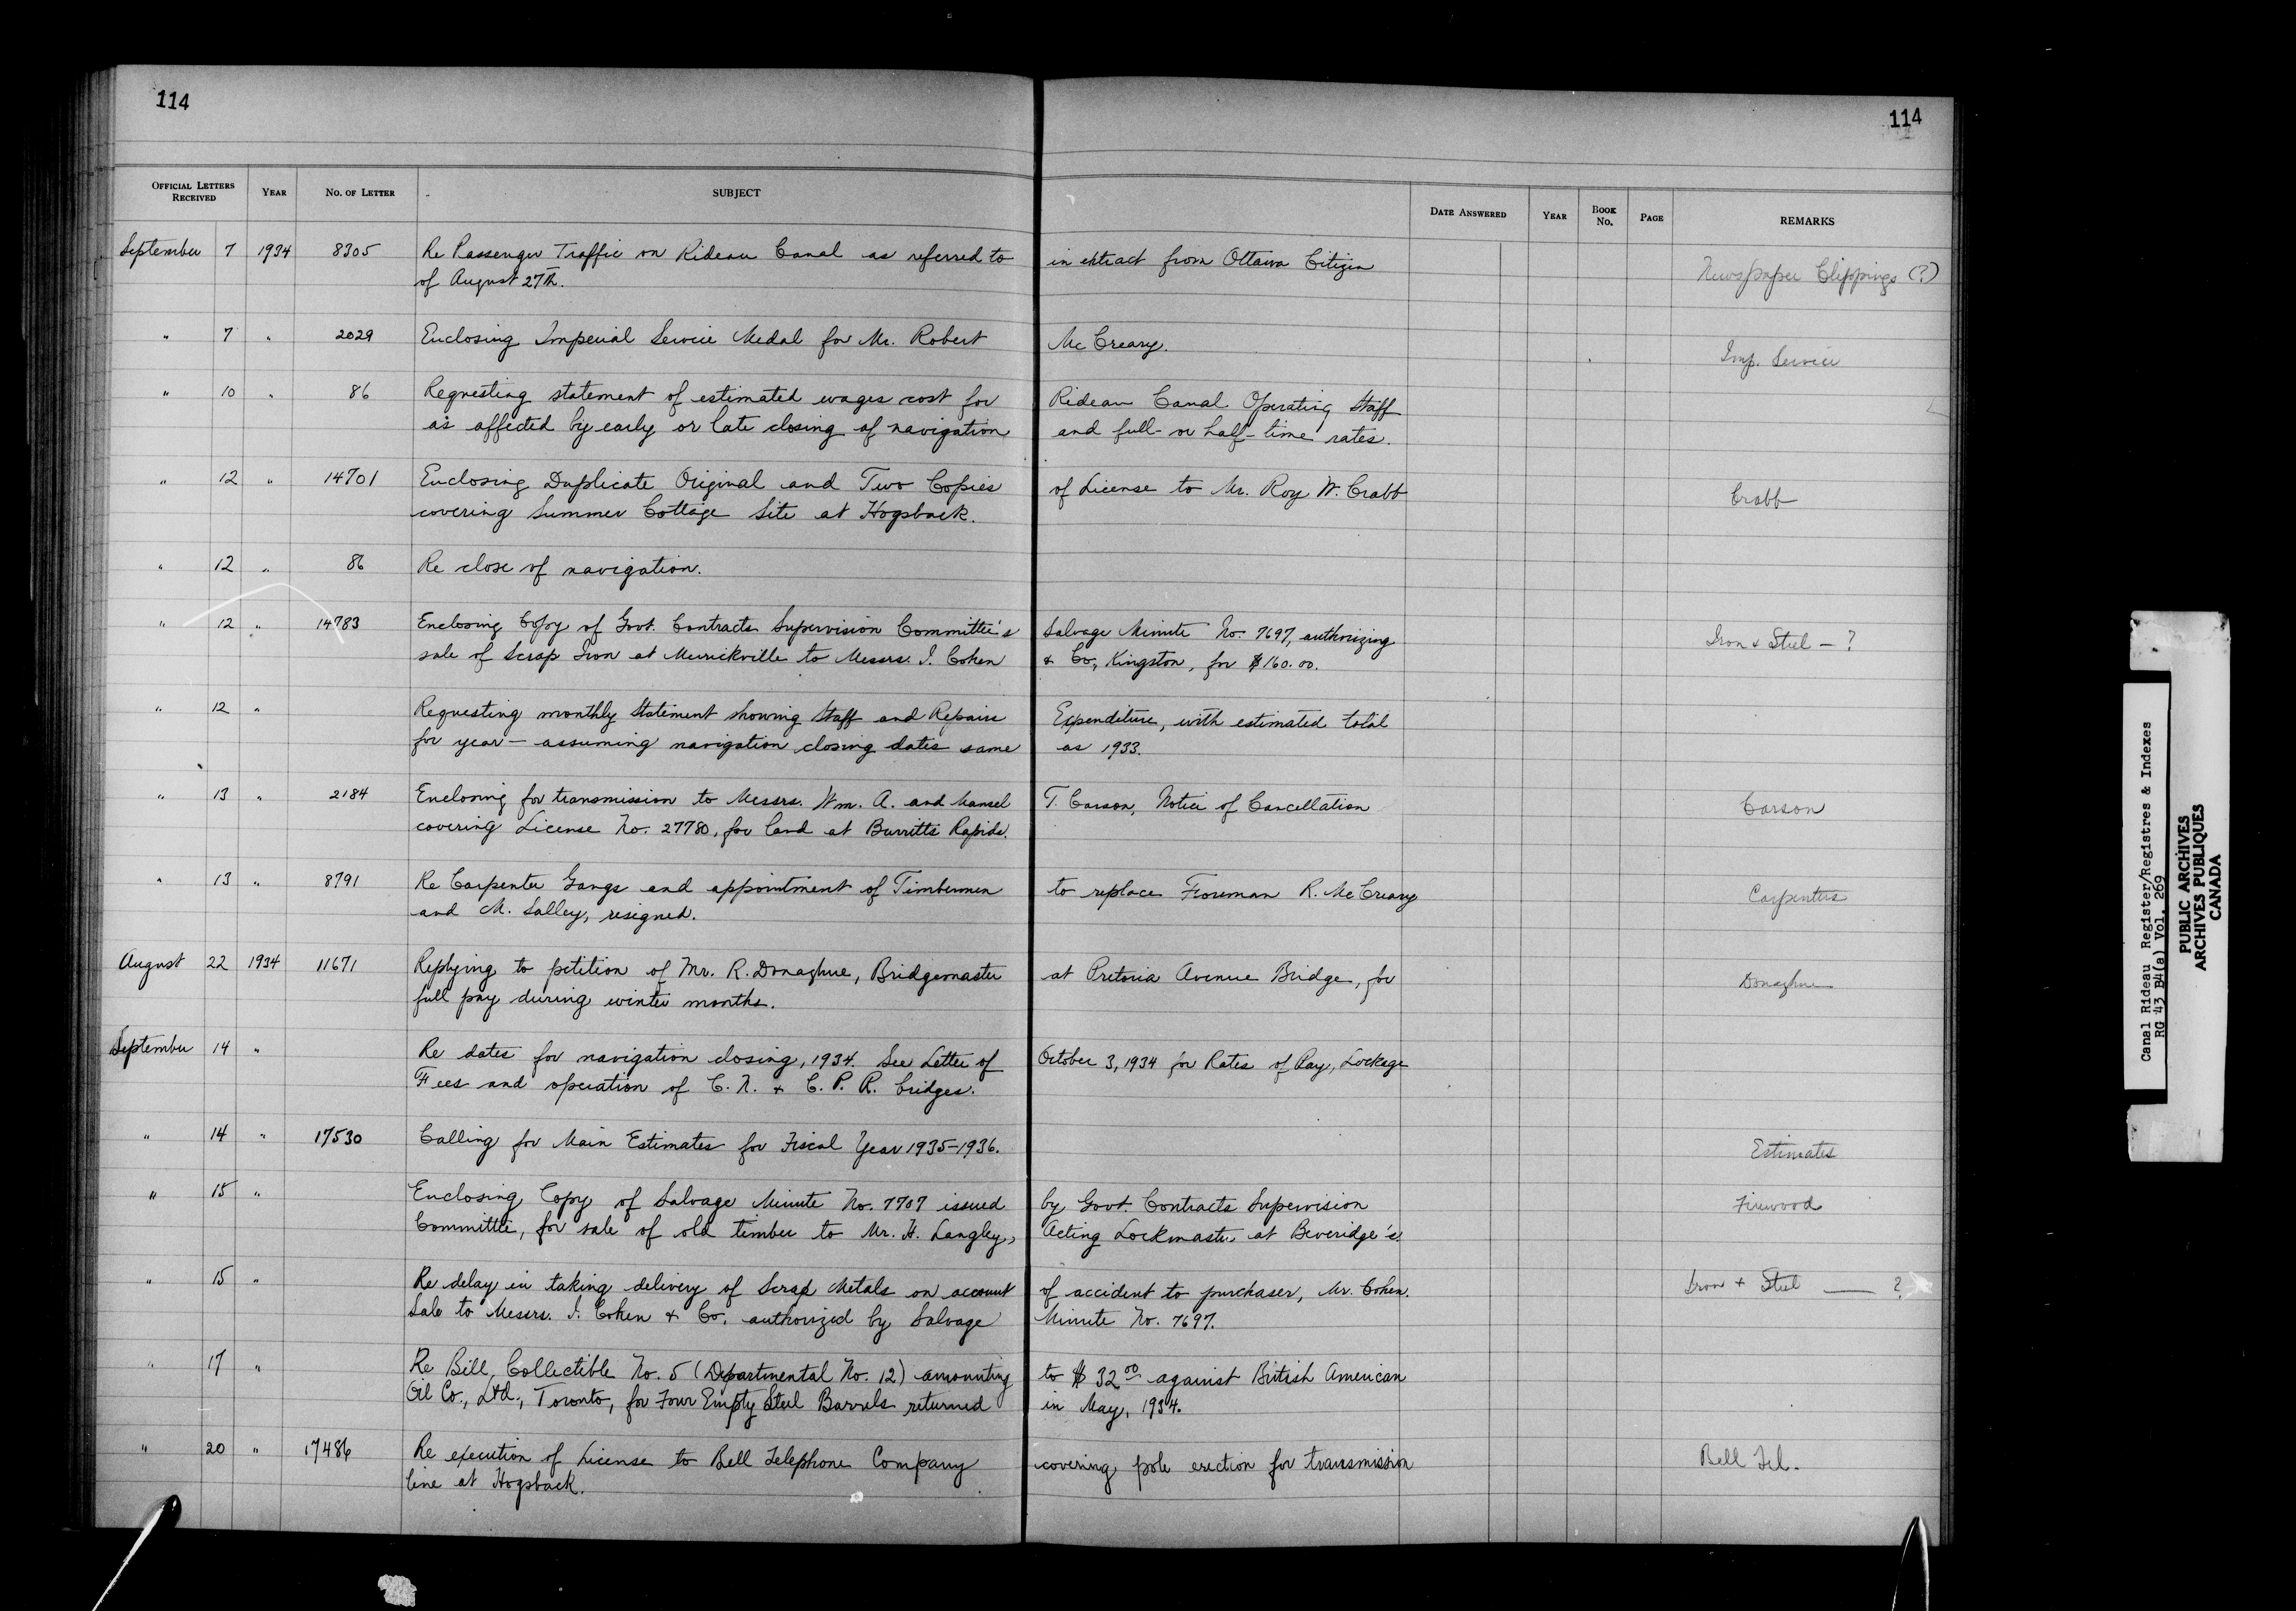 114
114
OFFICIAL LETTERS RECEIVED YEAR NO. OF LETTER SUBJECT DATE ANSWERED YEAR BOOK NO. PAGE REMARKS
September 7 1934 8305 Re Passenger Traffic on Rideau Canal as referred to in extract from Ottawa Citizen Newspaper Clippings (?)
of August 27th.
" 7 " 2029 Enclosing Imperial Service Medal for Mr. Robert McCreary. Imp. Service
" 10 " 86 Requesting statement of estimated wages cost for Rideau Canal Operating Staff
as affected by early or late closing of navigation and full- or half-time rates.
" 12 " 14701 Enclosing Duplicate Original and Two Copies of License to Mr. Roy W. Crabb Crabb
covering Summer Cottage Site at Hogsback.
" 12 " 86 Re close of navigation.
" 12 " 14783 Enclosing Copy of Govt. Contracts Supervision Committee's Salvage Minute No. 7697, authorizing Iron & Steel - ?
sale of Scrap Iron at Merrickville to Messrs. I. Cohen & Co., Kingston, for $160.00.
" 12 " Requesting monthly statement showing Staff and Repairs Expenditure, with estimated total
for year - assuming navigation closing dates same as 1933.
" 13 " 2184 Enclosing for transmission to Messrs. Wm. A. and Mansel T. Carson, Notice of Cancellation Carson
covering License No. 27780, for land at Burritts Rapids.
" 13 " 8791 Re Carpenter Gangs and appointment of Timbermen to replace Foreman R. McCreary Carpenters
and M. Salley, resigned.
August 22 1934 11671 Replying to petition of Mr. R. Donaghue, Bridgemaster at Pretoria Avenue Bridge, for Donaghue
full pay during winter months.
September 14 " Re dates for navigation closing, 1934. See Letter of October 3, 1934 for Rates of Pay, Lockage
Fees and operation of C. N. & C. P. R. bridges.
" 14 " 17530 Calling for Main Estimates for Fiscal Year 1935-1936. Estimates
" 15 " Enclosing Copy of Salvage Minute No. 7707 issued by Govt. Contracts Supervision Firewood
Committee, for sale of old timber to Mr. H. Langley, Acting Lockmaster at Beveridge's.
" 15 " Re delay in taking delivery of Scrap Metals on account of accident to purchaser, Mr. Cohen. Iron + Steel — ?
Sale to Messrs. I. Cohen & Co. authorized by Salvage Minute No. 7697.
" 17 " Re Bill Collectible No. 5 (Departmental No. 12) amounting to $32.00 against British American
Oil Co., Ltd., Toronto, for Four Empty Steel Barrels returned in May, 1934.
" 20 " 17486 Re execution of License to Bell Telephone Company covering pole erection for transmission Bell Tel.
line at Hogsback.
Canal Rideau Register/Registres & Indexes
RG 43 B4(a) Vol. 269
PUBLIC ARCHIVES
ARCHIVES PUBLIQUES
CANADA